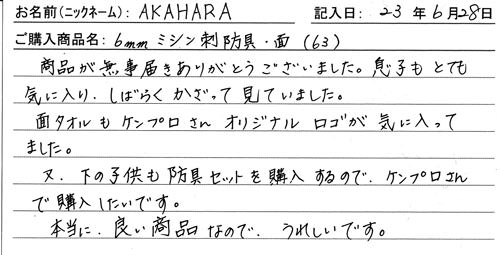 お名前(ニックネーム): AKAHARA 記入日: 23 年 6 月 28 日
ご購入商品名: 6mm ミシン刺防具・面 (63)
商品が無事届きありがとうございました。息子もとても
気に入り、しばらく かざって 見ていました。
面タオルも ケンプロさん オリジナル ロゴが 気に入って
ました。
又、下の子供も 防具セットを購入するので、ケンプロさん
で購入したいです。
本当に、良い商品なので、うれしいです。